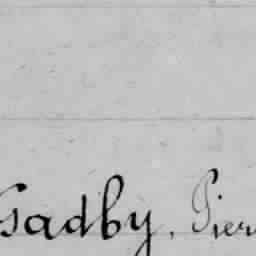 Gadby, Pier